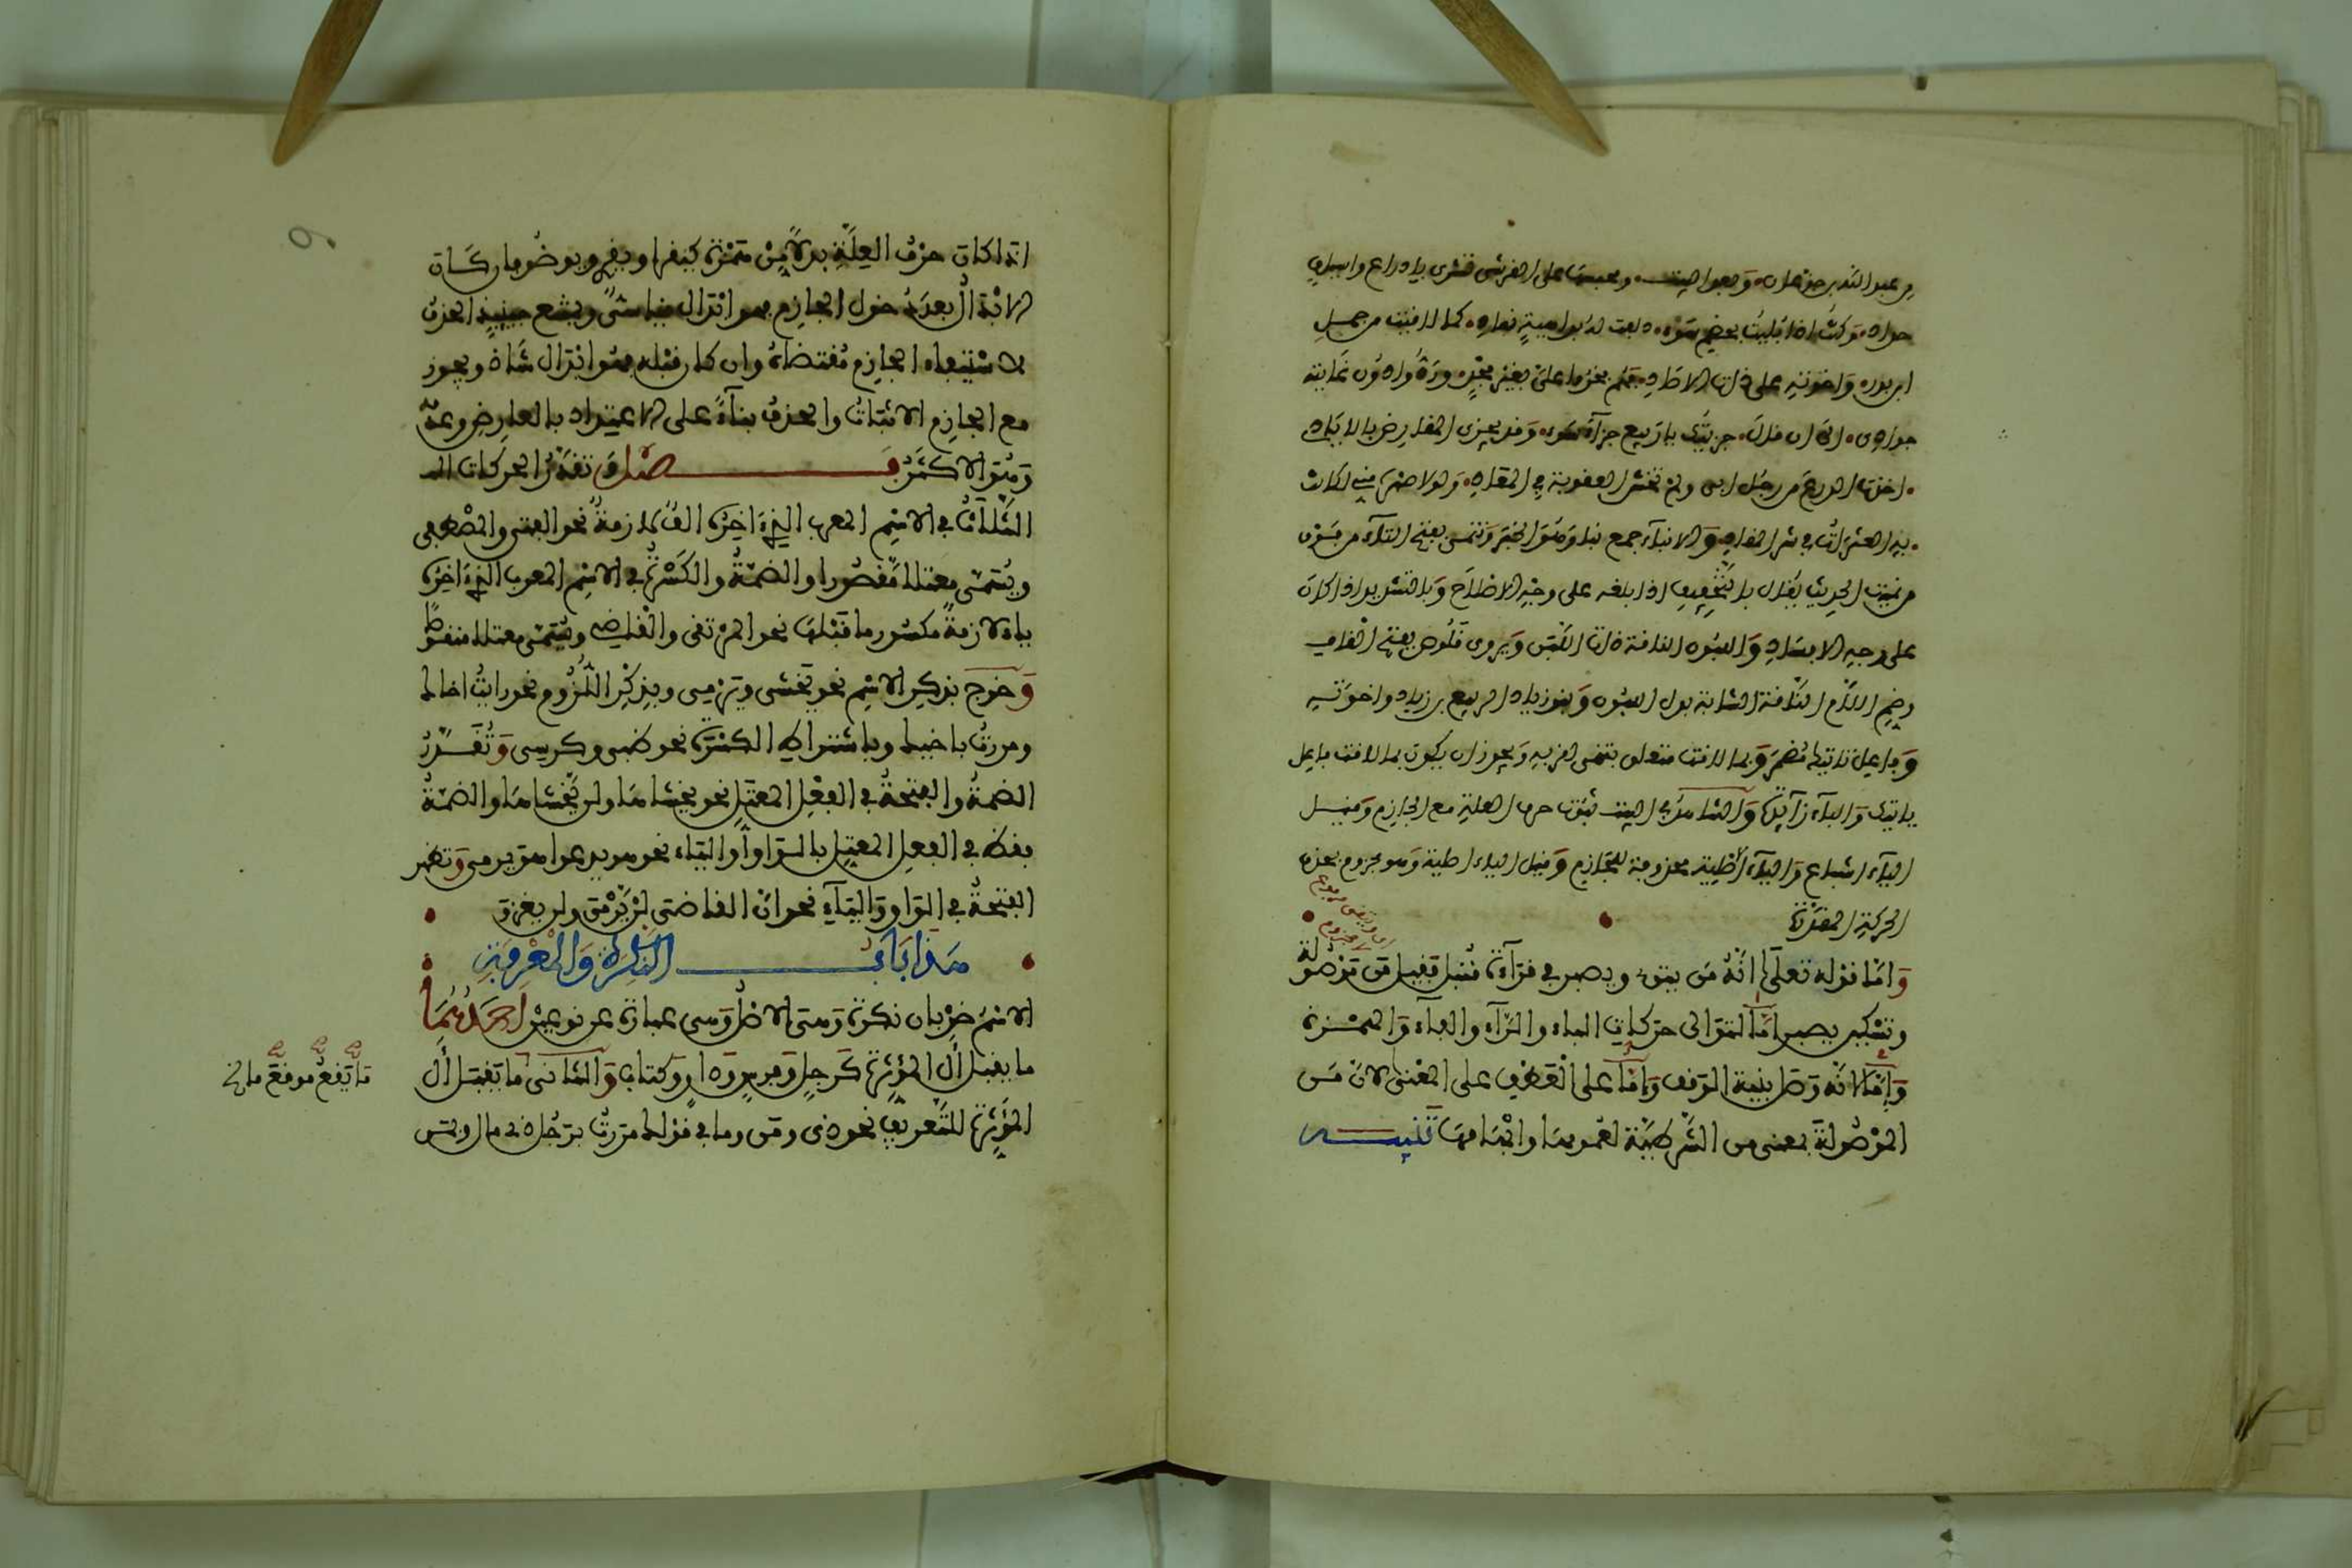 بن عبد الله بن جذعان وبعد البيت ومحبسها على القرشي تشرى بادراع واسياف
حداد وكنت اذا بليت بخصم سوء دلفت له بداهية نئاد كما لاقيت من حمل
ابن بدر واخوته على ذات الاصاد هم فخروا علي بغير فخر وردوا دون غايته
جوادي الى ان قال جزيتك يا ربيع جزاء سوء وقد يجزى المقارض بالايادي
اخذت الدرع من رجل ابي ولم تخش العقوبة في المعاد
والانباء جمع نبا وهو الخبر وتنمى بفتح التاء من قولك
من نميت الحديث يقال بالتخفيف اذا بلغه على وجه الاصلاح وبالتشديد اذا كان
على وجه الافساد واللبون الناقة ذات اللبن ويروى قلوص بفتح القاف
وضم اللام الناقة الشابة بدل اللبون وبنو زياد الربيع بن زياد واخوته
وفاعل ياتيك مضمر وبما لاقت متعلق بتنمى اقربه ويجوز ان يكون بما لاقت فاعل
ياتيك والباء زائدة والشاهد في البيت ثبوت حرف العلة مع الجازم وقيل
الياء اشباع والياء الاصلية محذوفة للجازم وقيل الياء اصلية وهو مجزوم بحذف
الحركة المقدرة
واما قوله تعالى انه من يتقي ويصبر في قراءة قنبل فقيل من موصولة
وتسكين يصبر اما لتوالى حركات الباء والراء والفاء والهمزة
واما لانه وصل بنية الوقف واما على العطف على المعنى لان من
الموصولة بمعنى من الشرطية لعمومها وابهامها تنبيه
اذا كان حرف العلة بدلا من همزة كيقرا ويقرئ ويوضو فان كان
الابدال بعد دخول الجازم فهو ابدال قياسي ويمتنع حينئذ الحذف
لاستيفاء الجازم مقتضاه وان كان قبله فهو ابدال شاذ ويجوز
مع الجازم الاثبات والحذف بناء على الاعتداد بالعارض وعدمه
وهو الاكثر فصل تقدر الحركات
الثلاث في الاسم المعرب الذي اخره الف لازمة نحو الفتى والمصطفى
ويسمى معتلا مقصورا والضمة والكسرة في الاسم المعرب الذي اخره
ياء لازمة مكسور ما قبلها نحو المرتقى والقاضي ويسمى معتلا منقوصا
وخرج بذكر الاسم نحو يخشى ويرمى وبذكر اللزوم نحو رايت اخاك
ومررت باخيك وباشتراط الكسرة نحو ظبى وكرسى وتقدر
الضمة والفتحة في الفعل المعتل نحو يخشاها ولن يخشاها والضمة
فقط في الفعل المعتل بالواو او الياء نحو هو يدعوا هو يرمى وتظهر
الفتحة في الواو والياء نحو ان القاضي لن يرمى ولن يغزو
هذا باب النكرة والمعرفة
الاسم ضربان نكرة وهى الاصل وهى عبارة عن نوعين احدهما
ما يقبل ال المؤثرة كرجل وفرس ودار وكتاب والثاني ما يقع
المؤثرة للتعريف نحو ذى ومن وما في قولك مررت برجل ذى مال وبمن
ما يقع موقع ما